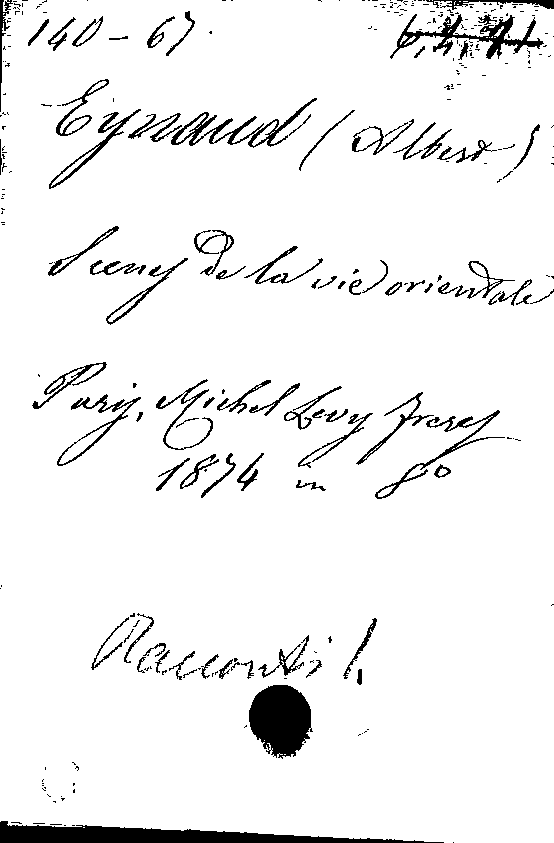 140-67.
6.2.21
Eynaud (Albert)
Scenes de la vie orientale
Paris, Michel Levy freres
1874 in 8º
Racconti 1.